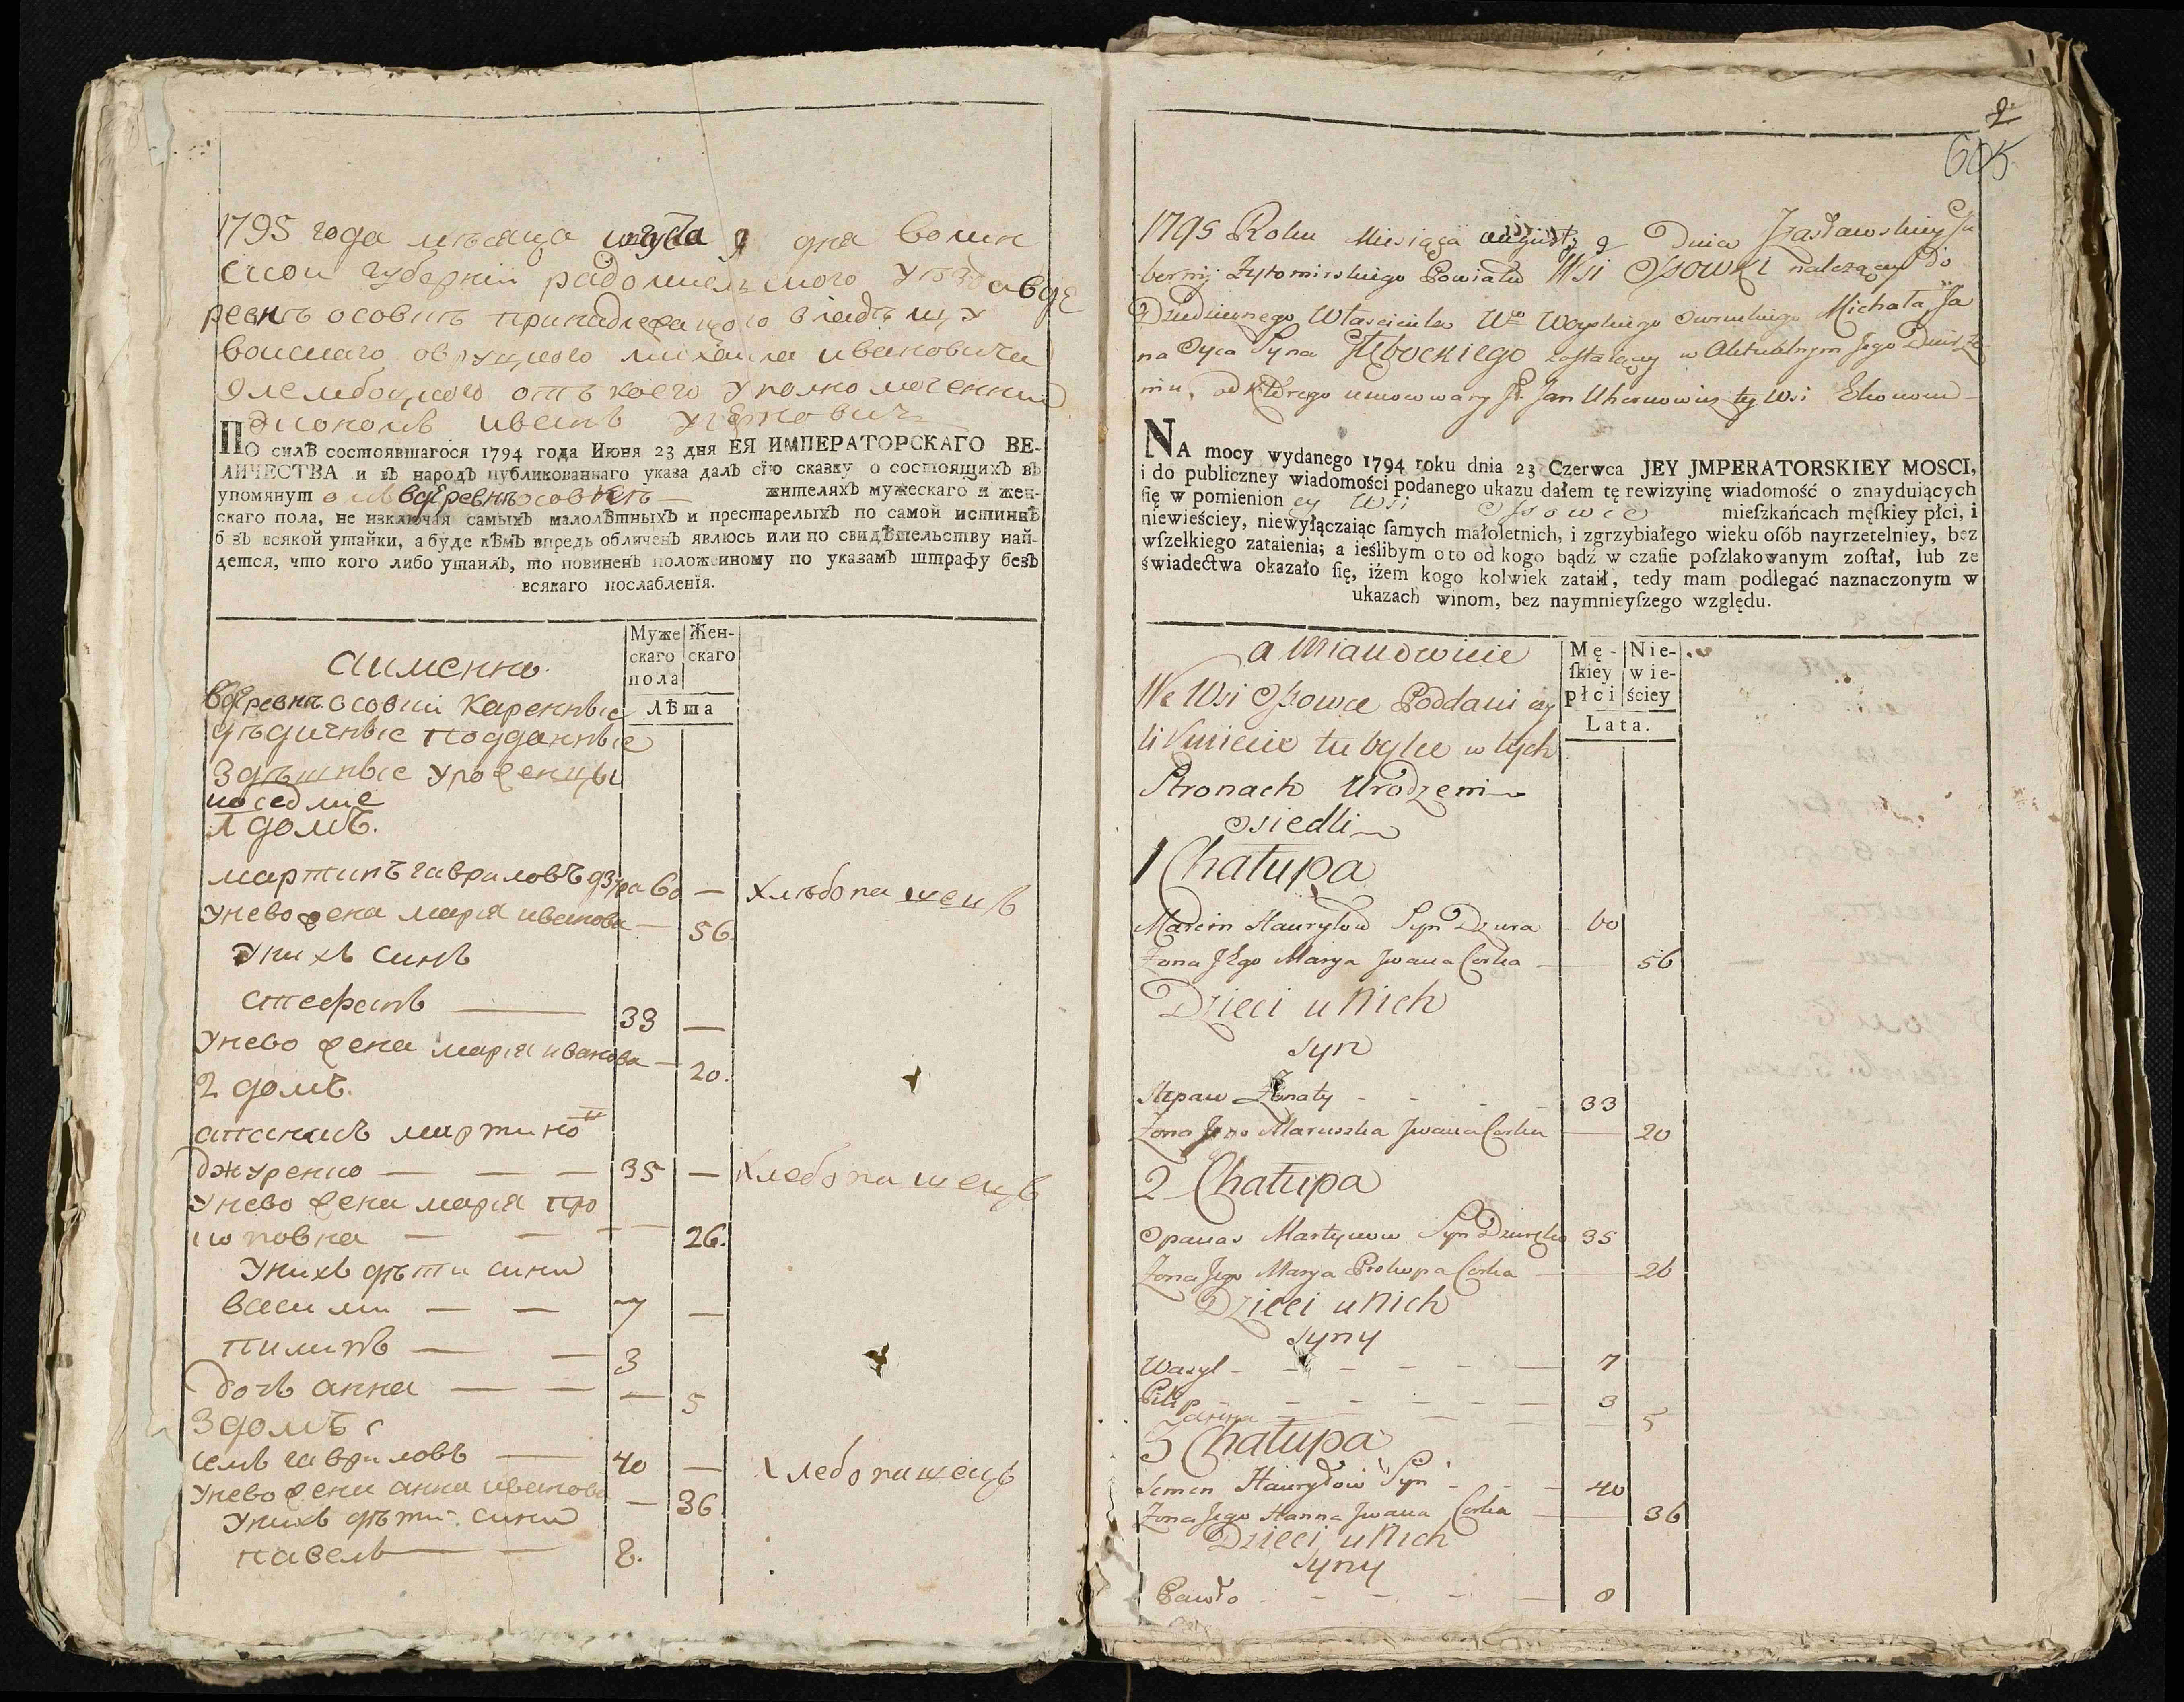 1795 года мѣсяца августа 9 дня волин
скои губерніи радомислского уѣзда вде
ревнѣ осовкѣ принадлежащого владѣлцу
воискаго овруцкого михаила ивановича
от коего уполномоченний
экономъ иванъ
ПО силѣ состоявшагося 1794 года Июня 23 дня ЕЯ ИМПЕРАТОРСКАГО ВЕ-
ЛИЧЕСТВА и въ народъ публикованнаго указа далъ сїю сказку о состоящихъ въ
упомянут вдеревнѣ осовкѣ жителяхъ мужескаго и жен-
скаго пола, не изключая самыхъ малолѣтныхъ и престарелыхъ по самой истиннѣ
б зъ всякой утайки, а буде кѣмъ впредь обличенъ явлюсь или по свидѣтельству най-
дется, что кого либо утаилъ, то повиненъ положенному по указамъ штрафу безъ
всякаго послабленїя.
Муже
скаго
пола
Жен-
скаго
Лѣта
аименно
вдеревнѣ осовки каренные
дѣдичные подданные
здѣшные уроженцы
1 домъ.
мартинъ гавриловъ дзура 60 — хлѣбопашецъ
унево жена марія иванова — 56.
унихъ синъ
стефанъ — 33 —
унево жена марія иванова — 20.
2 домъ.
апанасъ мартино
джуренко — — — 35 — хлебопашецъ
унево жена марія про
коповна — — — 26.
унихъ дѣти сини
васили — — 7 —
пилипъ — — 3
дочъ анна — — — 5
3 домъ
семъ гавриловъ — 40 — хлебопашецъ
унево жена анна иванова — 36
унихъ дѣти сини
павелъ — — 8.
2
605
1795 Roku Miesiąca augusty 9 Dnia Zasławskiey Gu
bernij Żytomirskiego Powiatu Wsi Osowki należącey do
Dziedzicznego Własciciela Wo Woyskiego Owruckiego Michała Ja
na Oyca Syna zostaiący w Jego Dzierże
niu, od którego umocowany Jan tey Wsi Ekonom
NA mocy wydanego 1794 roku dnia 23 Czerwca JEY JMPERATORSKIEY MOSCI,
i do publiczney wiadomości podanego ukazu dałem tę rewizyinę wiadomość o znayduiących
ſię w pomienion ey Wsi Osowce mieſzkańcach męſkiey płci, i
niewieściey, niewyłączaiąc ſamych małoletnich, i zgrzybiałego wieku oſób nayrzetelniey, bez
wſzelkiego zataienia; a ieślibym o to od kogo bądź w czaſie poſzlakowanym zoſtał, lub ze
świadectwa okazało ſię, iżem kogo kolwiek zataił, tedy mam podlegać naznaczonym w
ukazach winom, bez naymnieyſzego względu.
Mę-
ſkiey
płci
Nie-
wie-
ściey
Lata.
a Mianowicie
We Wsi Osowce Poddani czy
li Kmiecie tubylce w tych
Stronach Urodzeni
Osiedli
1 Chałupa
Marcin Hawryłow Syn Dzura 60
Zona Jego Marya Jwana Corka — 56
Dzieci u Nich
Syn
Stepan Zonaty - - - - 33
Zona Jego Maruszka Jwana Corka — 20
2 Chałupa
Opanas Martynow Syn Dzurenko 35
Zona Jego Marya Prokopa Corka — 26
Dzieci u Nich
Syny
Wasyl - - - - — 7
Pilip - - - - — 3
Hanna — — — 5
3 Chałupa
Semen Hawryłow Syn - - - 40
Zona Jego Hanna Jwana Corka — 36
Dzieci u Nich
Syny
Pawło - - - - — 8